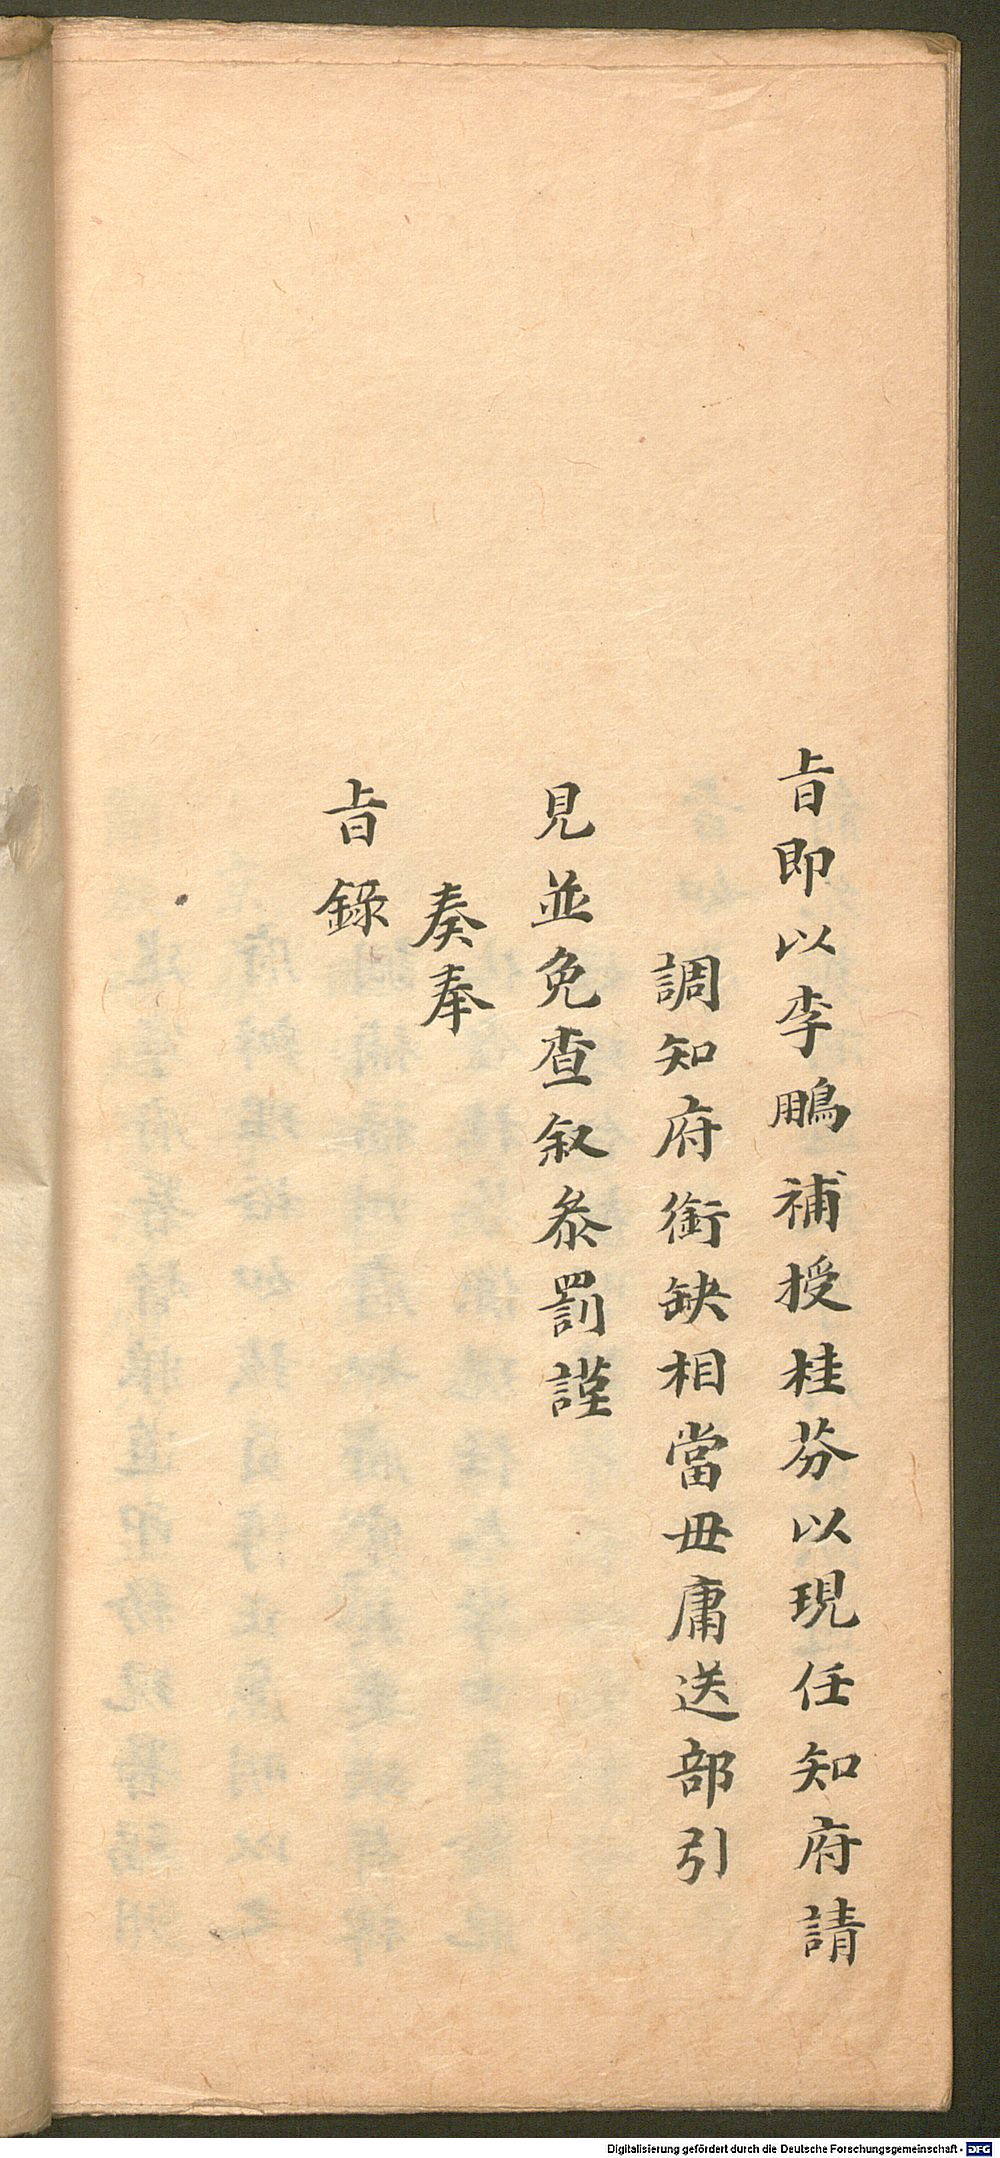 旨即以李鵬補授桂芬以現任知府請
調知府銜缺相當毋庸送部引
見並免查叙叅罰謹
奏奉
旨錄
Digitalisierung gefördert durch die Deutsche Forschungsgemeinschaft - DFG